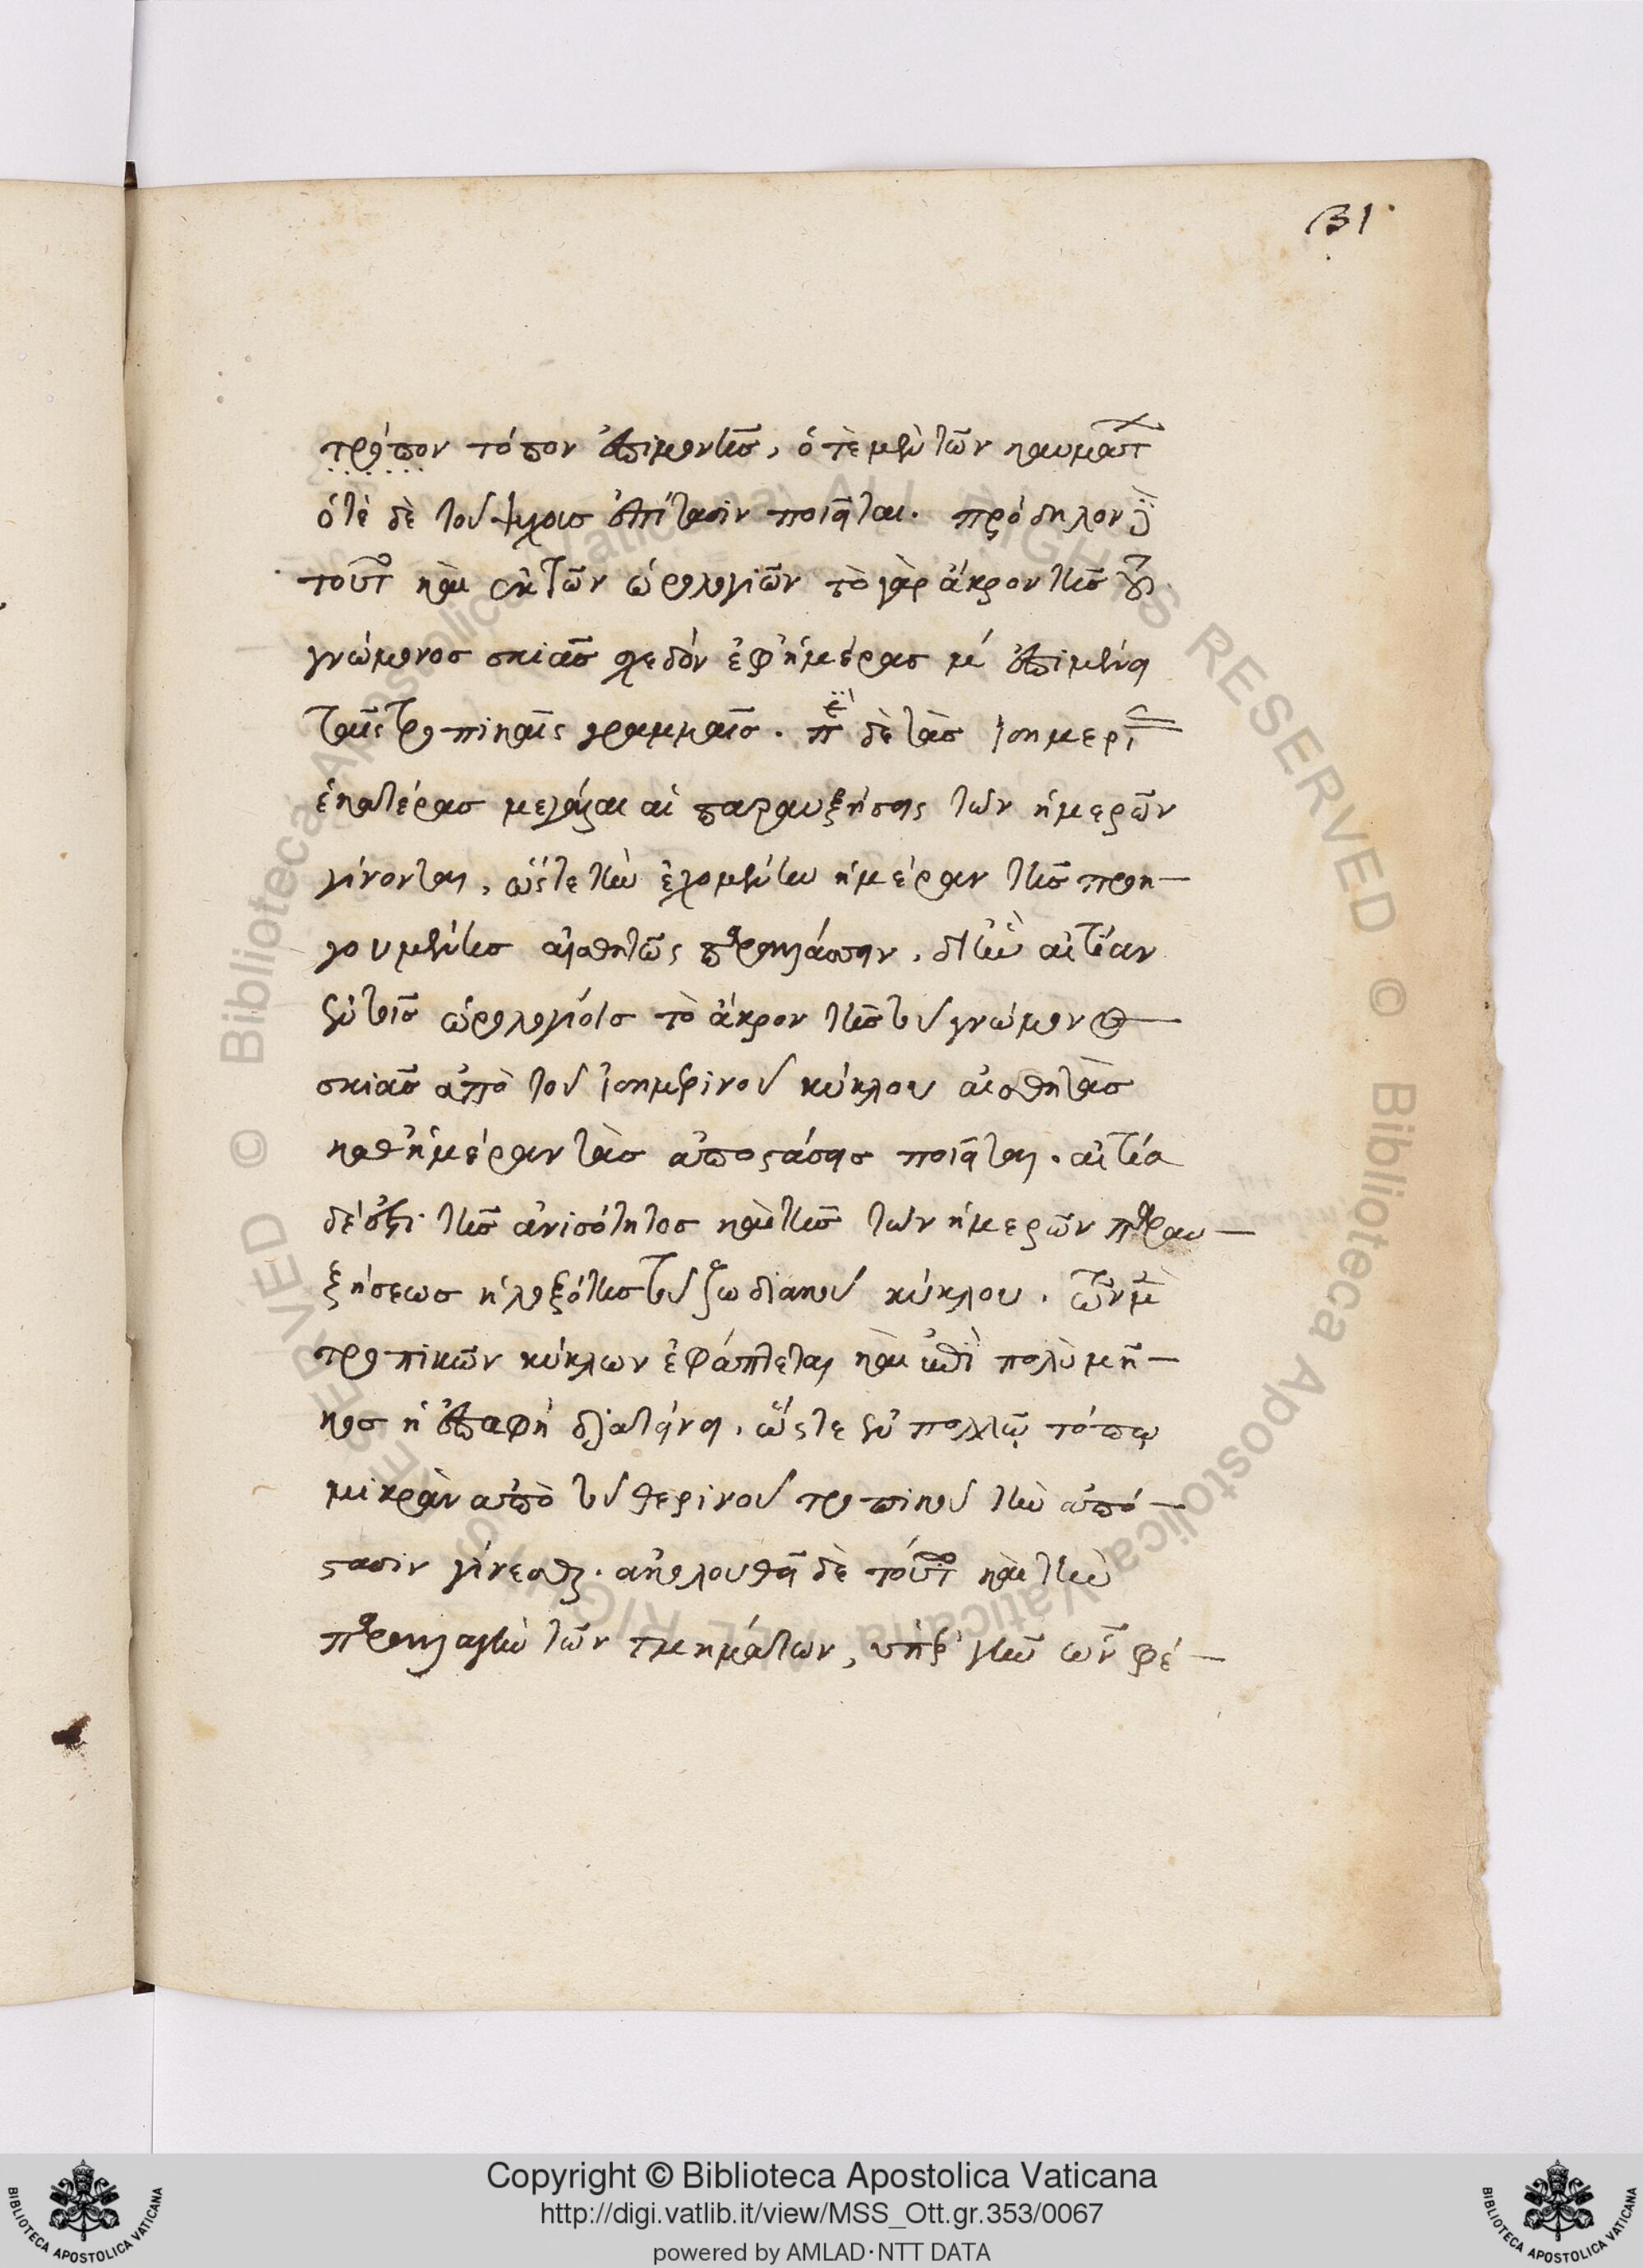 31
τρόπον τόπον ἐπιμονῆς, ὁτὲ μὲν τῶν καυμάτ
ὁτὲ δὲ τοῦ ψύχους ἐπίτασιν ποιεῖται. πρόδηλον δὲ
τοῦτο καὶ ἐκ τῶν ὡρολογιῶν τὸ γὰρ ἄκρον τῆς τοῦ
γνώμονος σκιᾶς σχεδὸν ἐφ' ἡμέρας μ' ἐπιμένει
ταῖς τροπικαῖς γραμμαῖς. περὶ δὲ τὰς ἰσημερί
ἑκατέρας μεγάλαι αἱ παραυξήσεις τῶν ἡμερῶν
γίνονται, ὥστε τὴν ἐχομένην ἡμέραν τῆς προη–
γουμένης αἰσθητῶς παραλλάσσειν. δι' ἣν αἰτίαν
ἐν τοῖς ὡρολογίοις τὸ ἄκρον τῆς τοῦ γνώμονος
σκιᾶς ἀπὸ τοῦ ἰσημερινοῦ κύκλου αἰσθητὰς
καθ' ἡμέραν τὰς ἀποστάσεις ποιεῖται. αἰτία
δέ ἐστι τῆς ἀνισότητος καὶ τῆς τῶν ἡμερῶν παραυ–
ξήσεως ἡ λοξότης τοῦ ζωδιακοῦ κύκλου. τῶν μὲν
τροπικῶν κύκλων ἐφάπτεται καὶ ἐπὶ πολὺ μῆ–
κος ἡ ἐπαφὴ διατείνει, ὥστε ἐν πολλῷ τόπῳ
μικρὰν ἀπὸ τοῦ θερινοῦ τροπικοῦ τὴν ἀπό–
στασιν γίνεσθαι. ἀκολουθεῖ δὲ τούτοις καὶ τὴν
παραλλαγὴν τῶν τμημάτων, ὑπὲρ γῆν ὧν φέ–
Copyright © Biblioteca Apostolica Vaticana
http://digi.vatlib.it/view/MSS_Ott.gr.353/0067
powered by AMLAD·NTT DATA
BIBLIOTECA APOSTOLICA VATICANA
BIBLIOTECA APOSTOLICA VATICANA